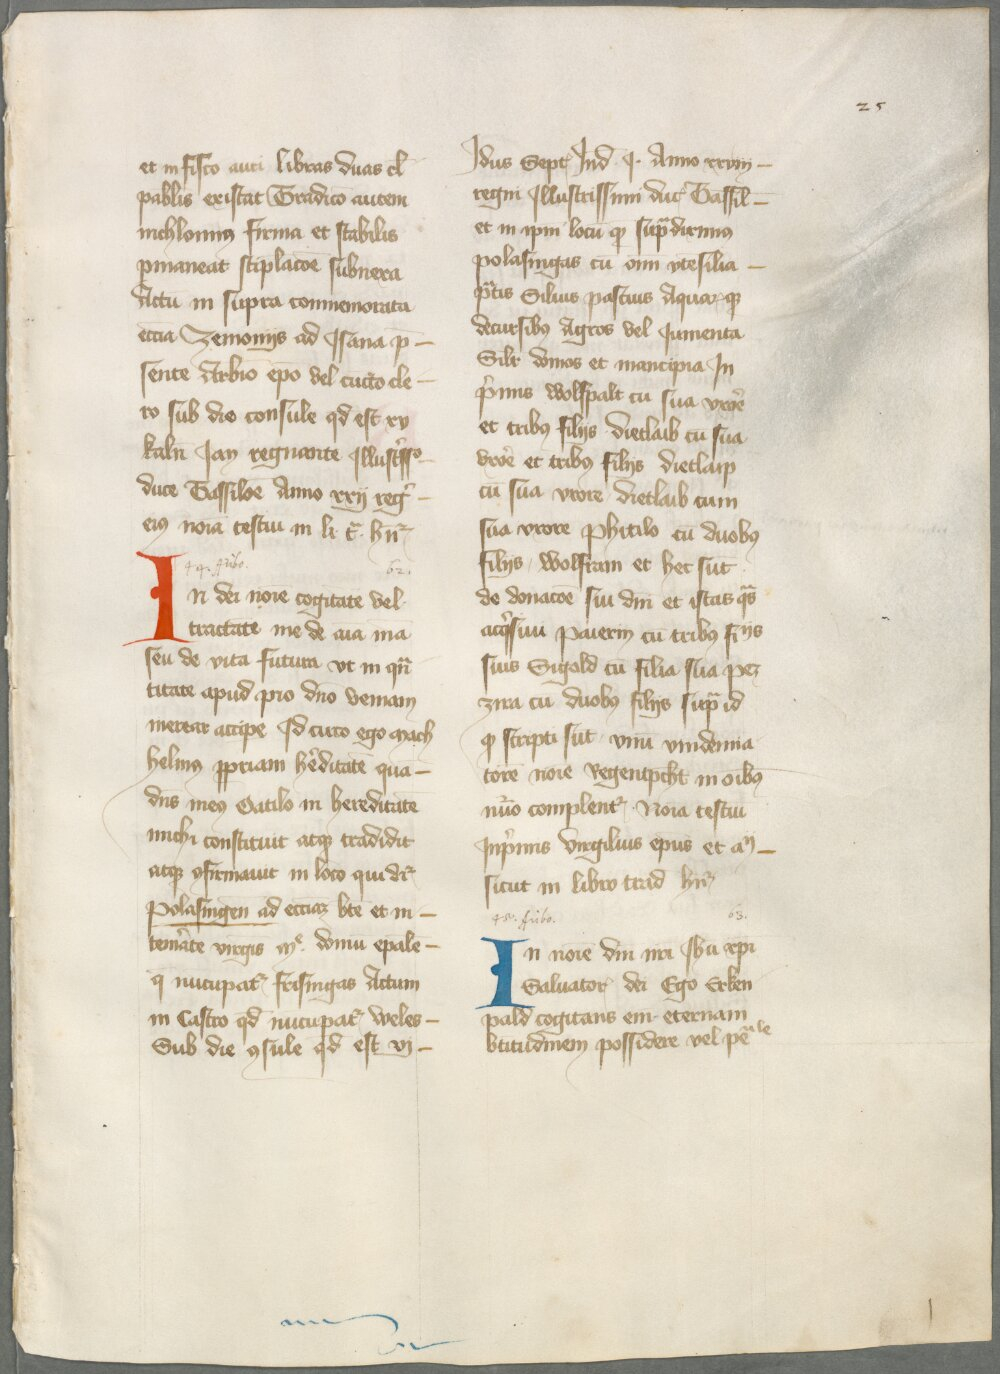 25
et in fisco auri libras duas cl
pablis existat Tradico autem
nichlomins firma et stabilis
pmaneat stiplacoe subnexa
Actu in supra commemorata
eccia Zemonijs ad Isana p
sente Arbio epo vel cucto cle
ro sub die consule qd est xv
kaln Jan regnante Illustrss
duce Tassiloe Anno xxij reg
eius noia testiu in li t hnr
44. fribo. 62.
In dei noie cogitate vel
tractate me de aia ma
seu de vita futura vt in qn
titate apud pio dno veniam
merear accipe Id circo ego mach
helmus ppriam hditate qua
dns meus Oatilo in hereditate
michi constituit atqz tradidit
atqz 9firmauit in loco qui dr
Polasingen ad ecciaz bte et in
temate virgis domu epale
q nucupat frisingas Actum
in Castro qd nucupat weles
Sub die 9sule qd est vj
Idus Sept Ind j. Anno xxviij
regni Illustrissimi duc Tassil
et in ipm locu q supdiximus
polasingas cu oim vtesilia
ptis Siluis pascuis Aquarqz
decursibus Agros vel Iumenta
Silr domos et mancipia In
pmis wolfpalt cu sua vxore
et tribus filijs dietlaib cu sua
vxore et tribus filijs dietlaip
cu sua vxore dietlaib cum
sua vxore phitilo cu duobus
filijs wolfram et hec sut
de donacoe sui dni et istas qs
acqsiui paierin cu tribus fiijs
suis Sigold cu filia sua pez
zira cu duobus filijs sup id
q scripti sut vnu vindemia
tore noie Regentpcht in oibus
nuo complent Noia testiu
Inpmis virgilius epus et aij
sicut in libro trad hnr
45. fribo. 63.
In noie dni nri Ihu xpi
Saluator dei Ego Erken
pald cogitans em eternam
btitudinem possidere vel pele